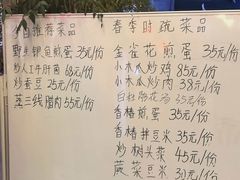 今日推荐菜品
野生钾鱼煎蛋 35元/份
炒人工牛肝菌 68元/份
炒蚕豆 25元/份
蒸三线腊肉 55元/份
春季时蔬菜品
金雀花煎蛋 35元/份
小木瓜炒鸡 85元/份
小木瓜炒肉 38元/份
白杜鹃花汤 35元/份
香椿煎蛋 35元/份
香椿拌豆米 35元/
炒树头菜 45元/
蕨菜豆米 30元/